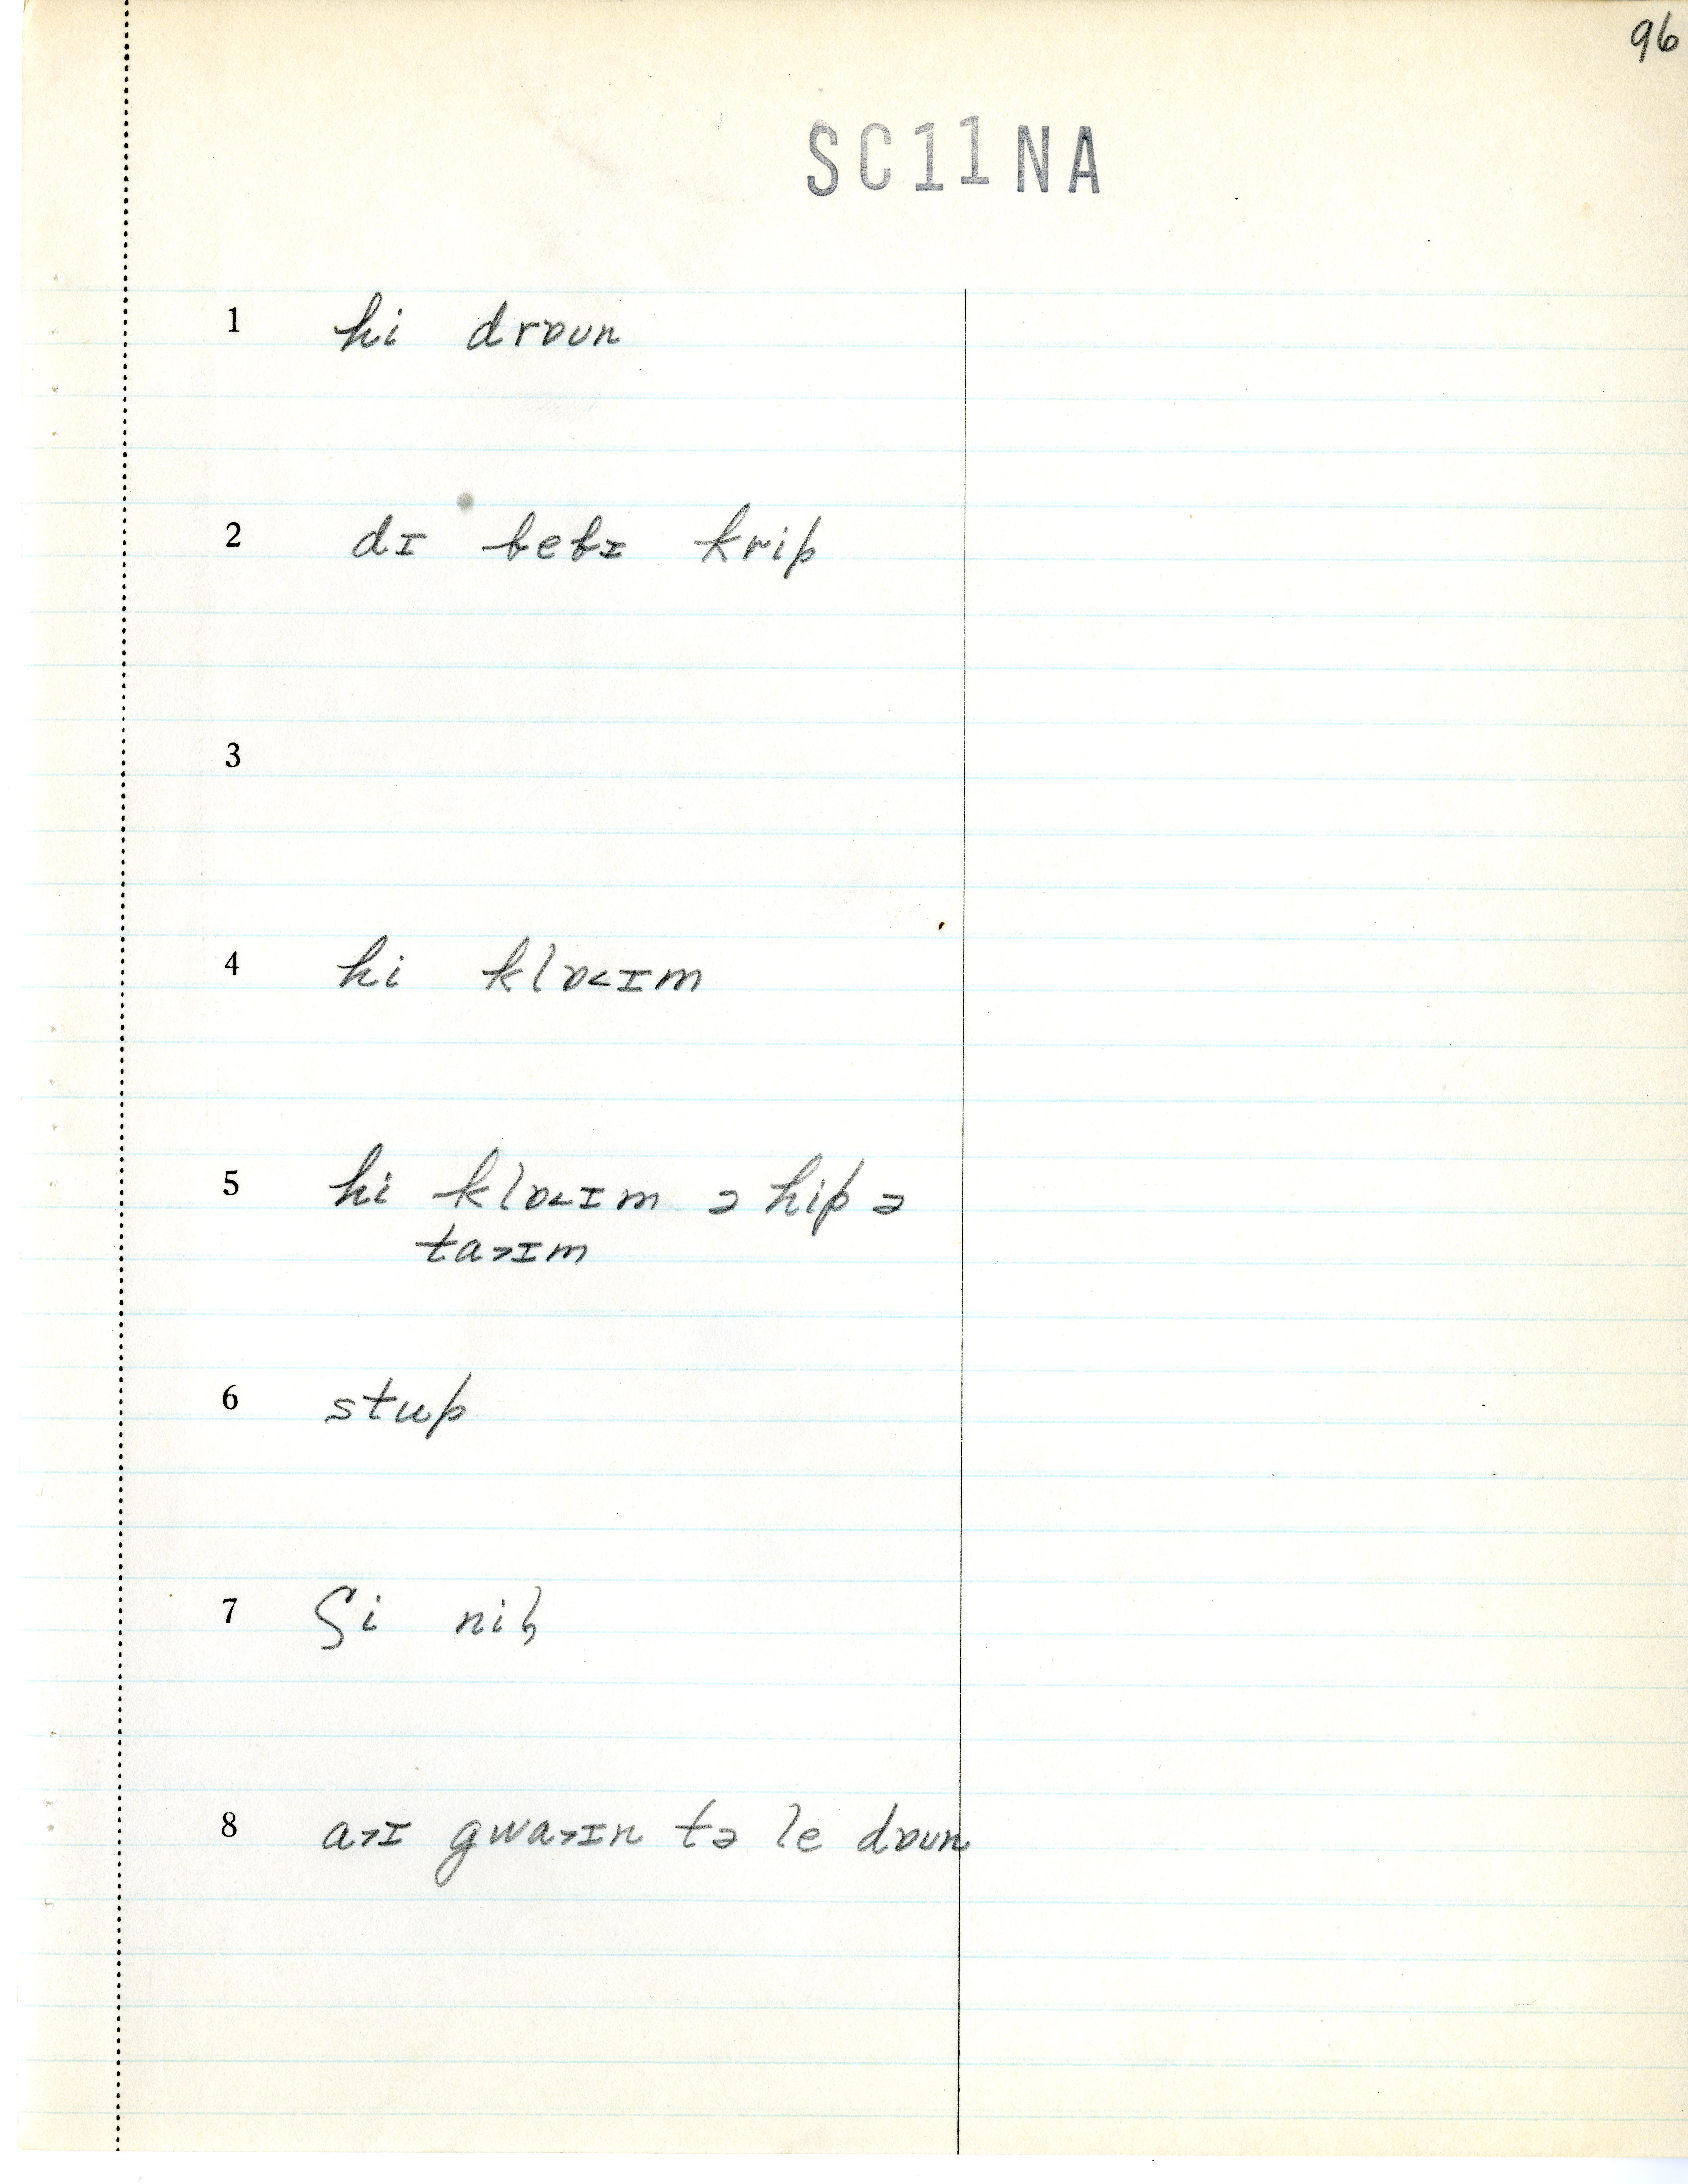 96
SC11NA
1 hi drɒun
2 dɪ bebɪ krip
3
4 hi klɒ˂ɪm
5 hi klɒ˂ɪm ə hip ə
ta˃ɪm
6 stup
7 ʃi nil
8 a˃ɪ gwa˃ɪn tə le dɒun